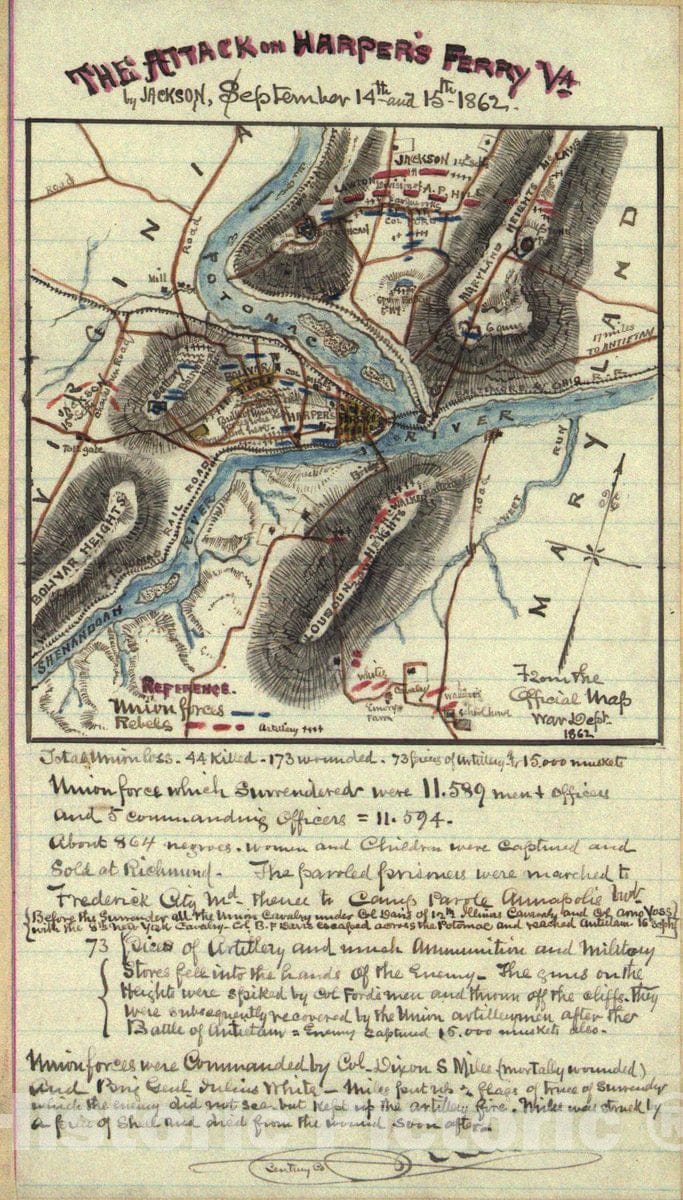 THE ATTACK on HARPER'S FERRY VA
by JACKSON, September 14th and 15th 1862.
Road
Road
VIRGINIA
Mill
POTOMAC
RIVER
JACKSON
LAWTON
A.P. HILL
COL FORD
MARYLAND HEIGHTS
McLAWS
6 guns
17 miles
TO ANTIETAM
MARYLAND
BOLIVAR
HARPER'S
Tollgate
BOLIVAR HEIGHTS
RAIL ROAD
SHENANDOAH
RIVER
Bridge
WALKER
LOUDOUN HEIGHTS
Road
RUN
REFERENCE.
Union forces
Rebels
Artillery
Cavalry
Farm
From the
Official Map
War Dept.
1862
Total Union loss. 44 killed - 173 wounded - 73 pieces of Artillery & 15.000 muskets
Union force which surrendered were 11.589 men & officers
and 5 commanding Officers = 11.594.
About 864 negroes. women and Children were Captured and
Sold at Richmond. The paroled prisoners were marched to
Frederick City Md. thence to Camp Parole Annapolis Md.
Before the Surrender all the Union Cavalry under Col Davis of 12th Illinois Cavaraly and Col Arno Voss
with the 8th New York Cavalry - Col. B.F. Davis escaped across the Potomac and reached Antietam 16 Sept
73 pices of Artillery and much Ammunition and Military
Stores fell into the hands of the Enemy - The guns on the
Heights were spiked by Col Fords men and thrown off the cliffs. they
were subsequently recovered by the Union artillerymen after the
Battle of Antietam = Enemy Captured 15.000 muskets also.
Union forces were Commanded by Col. Dixon S Miles (mortally wounded)
and Brig Genl. Julius White - Miles put up a flag of truce of Surrender
which the enemy did not see but kept up the artillery fire. Miles was struck by
a piece of Shell and died from the wound soon after.
Century Co
HISTORIC